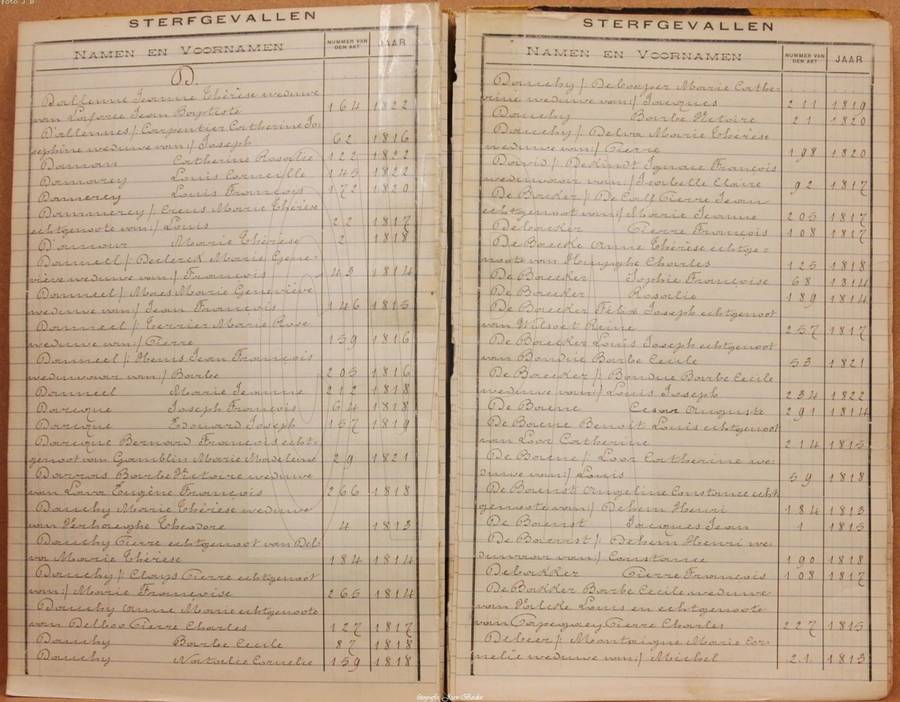 Foto J.B
STERFGEVALLEN
NAMEN EN VOORNAMEN NUMMER VAN DEN AKT JAAR
D.
Dallenne Jeanne Thérèse weduwe
van Laforce Jean Baptiste 164 1822
Dallennes /: Carpentier Catherine Jo
sephine weduwe van :/ Joseph 62 1816
Damans Catherine Rosalie 122 1822
Damarey Louis Corneille 145 1822
Damerey Louis François 172 1820
Dammerey /: Creus Marie Thérèse
echtgenoote van :/ Louis 22 1817
D'amour Marie Thérèse 2 1818
Danneel /: Declerck Marie Gene-
viève weduwe van :/ François 43 1814
Danneel /: Maes Marie Geneviève
weduwe van :/ Jean François 146 1815
Danneel /: Terrier Marie Rose
weduwe van :/ Pierre 159 1816
Danneel /: Hens Jean François
weduwaar van :/ Barbe 205 1816
Danneel Marie Jeanne 212 1818
Daricque Joseph François 64 1818
Daricque Edouard Joseph 157 1819
Daricque Bernard François echt-
genoot van Gamblin Marie Madeleine 29 1821
Darras Barbe Victoire weduwe
van Lava Eugène François 266 1818
Dauchy Marie Thérèse weduwe
van Verhaeghe Theodore 4 1813
Dauchy Pierre echtgenoot van Del-
va Marie Thérèse 184 1814
Dauchy /: Clays Pierre echtgenoot
van :/ Marie Françoise 265 1814
Dauchy Anne Marie echtgenoote
van Delbos Pierre Charles 127 1817
Dauchy Barbe Cecile 87 1818
Dauchy Natalie Cornelie 159 1818
STERFGEVALLEN
NAMEN EN VOORNAMEN NUMMER VAN DEN AKT JAAR
Dauchy /: Decooper Marie Cathe-
rine weduwe van :/ Jacques 211 1819
Dauchy Barbe Victoire 21 1820
Dauchy /: Delva Marie Thérèse
weduwe van :/ Pierre 198 1820
David /: Dekindt Ignace François
weduwaar van :/ Isabelle Claire 92 1817
De Backer /: De Calf Pierre Jean
echtgenoot van :/ Marie Jeanne 205 1817
Debacker Pierre François 108 1817
De Baecke Anne Thérèse echtge-
noote van Huyghe Charles 125 1818
De Baecker Sophie Françoise 68 1814
De Baecker Rosalie 189 1814
De Baecker Félix Joseph echtgenoot
van Wilsoet Reine 257 1817
De Baecker Louis Joseph echtgenoot
van Bondue Barbe Cecile 53 1821
De Baecker /: Bondue Barbe Cecile
weduwe van :/ Louis Joseph 234 1822
De Baene Cesar Auguste 291 1814
De Baene Benoit Louis echtgenoot
van Loor Catherine 214 1815
De Baene /: Loor Catherine we-
duwe van :/ Louis 59 1818
De Baenst Angeline Constance echt
genoote van :/ Dehem Henri 184 1813
De Baenst Jacques Jean 1 1815
De Baenst /: Dehem Henri we-
duwaar van :/ Constance 190 1818
Debakker Pierre François 108 1817
De Bakker Barbe Cecile weduwe
van Valcke Louis en echtgenoote
van Carpegaey Pierre Charles 227 1815
Debeer /: Montaigne Marie Cor-
nelie weduwe van :/ Michel 21 1813